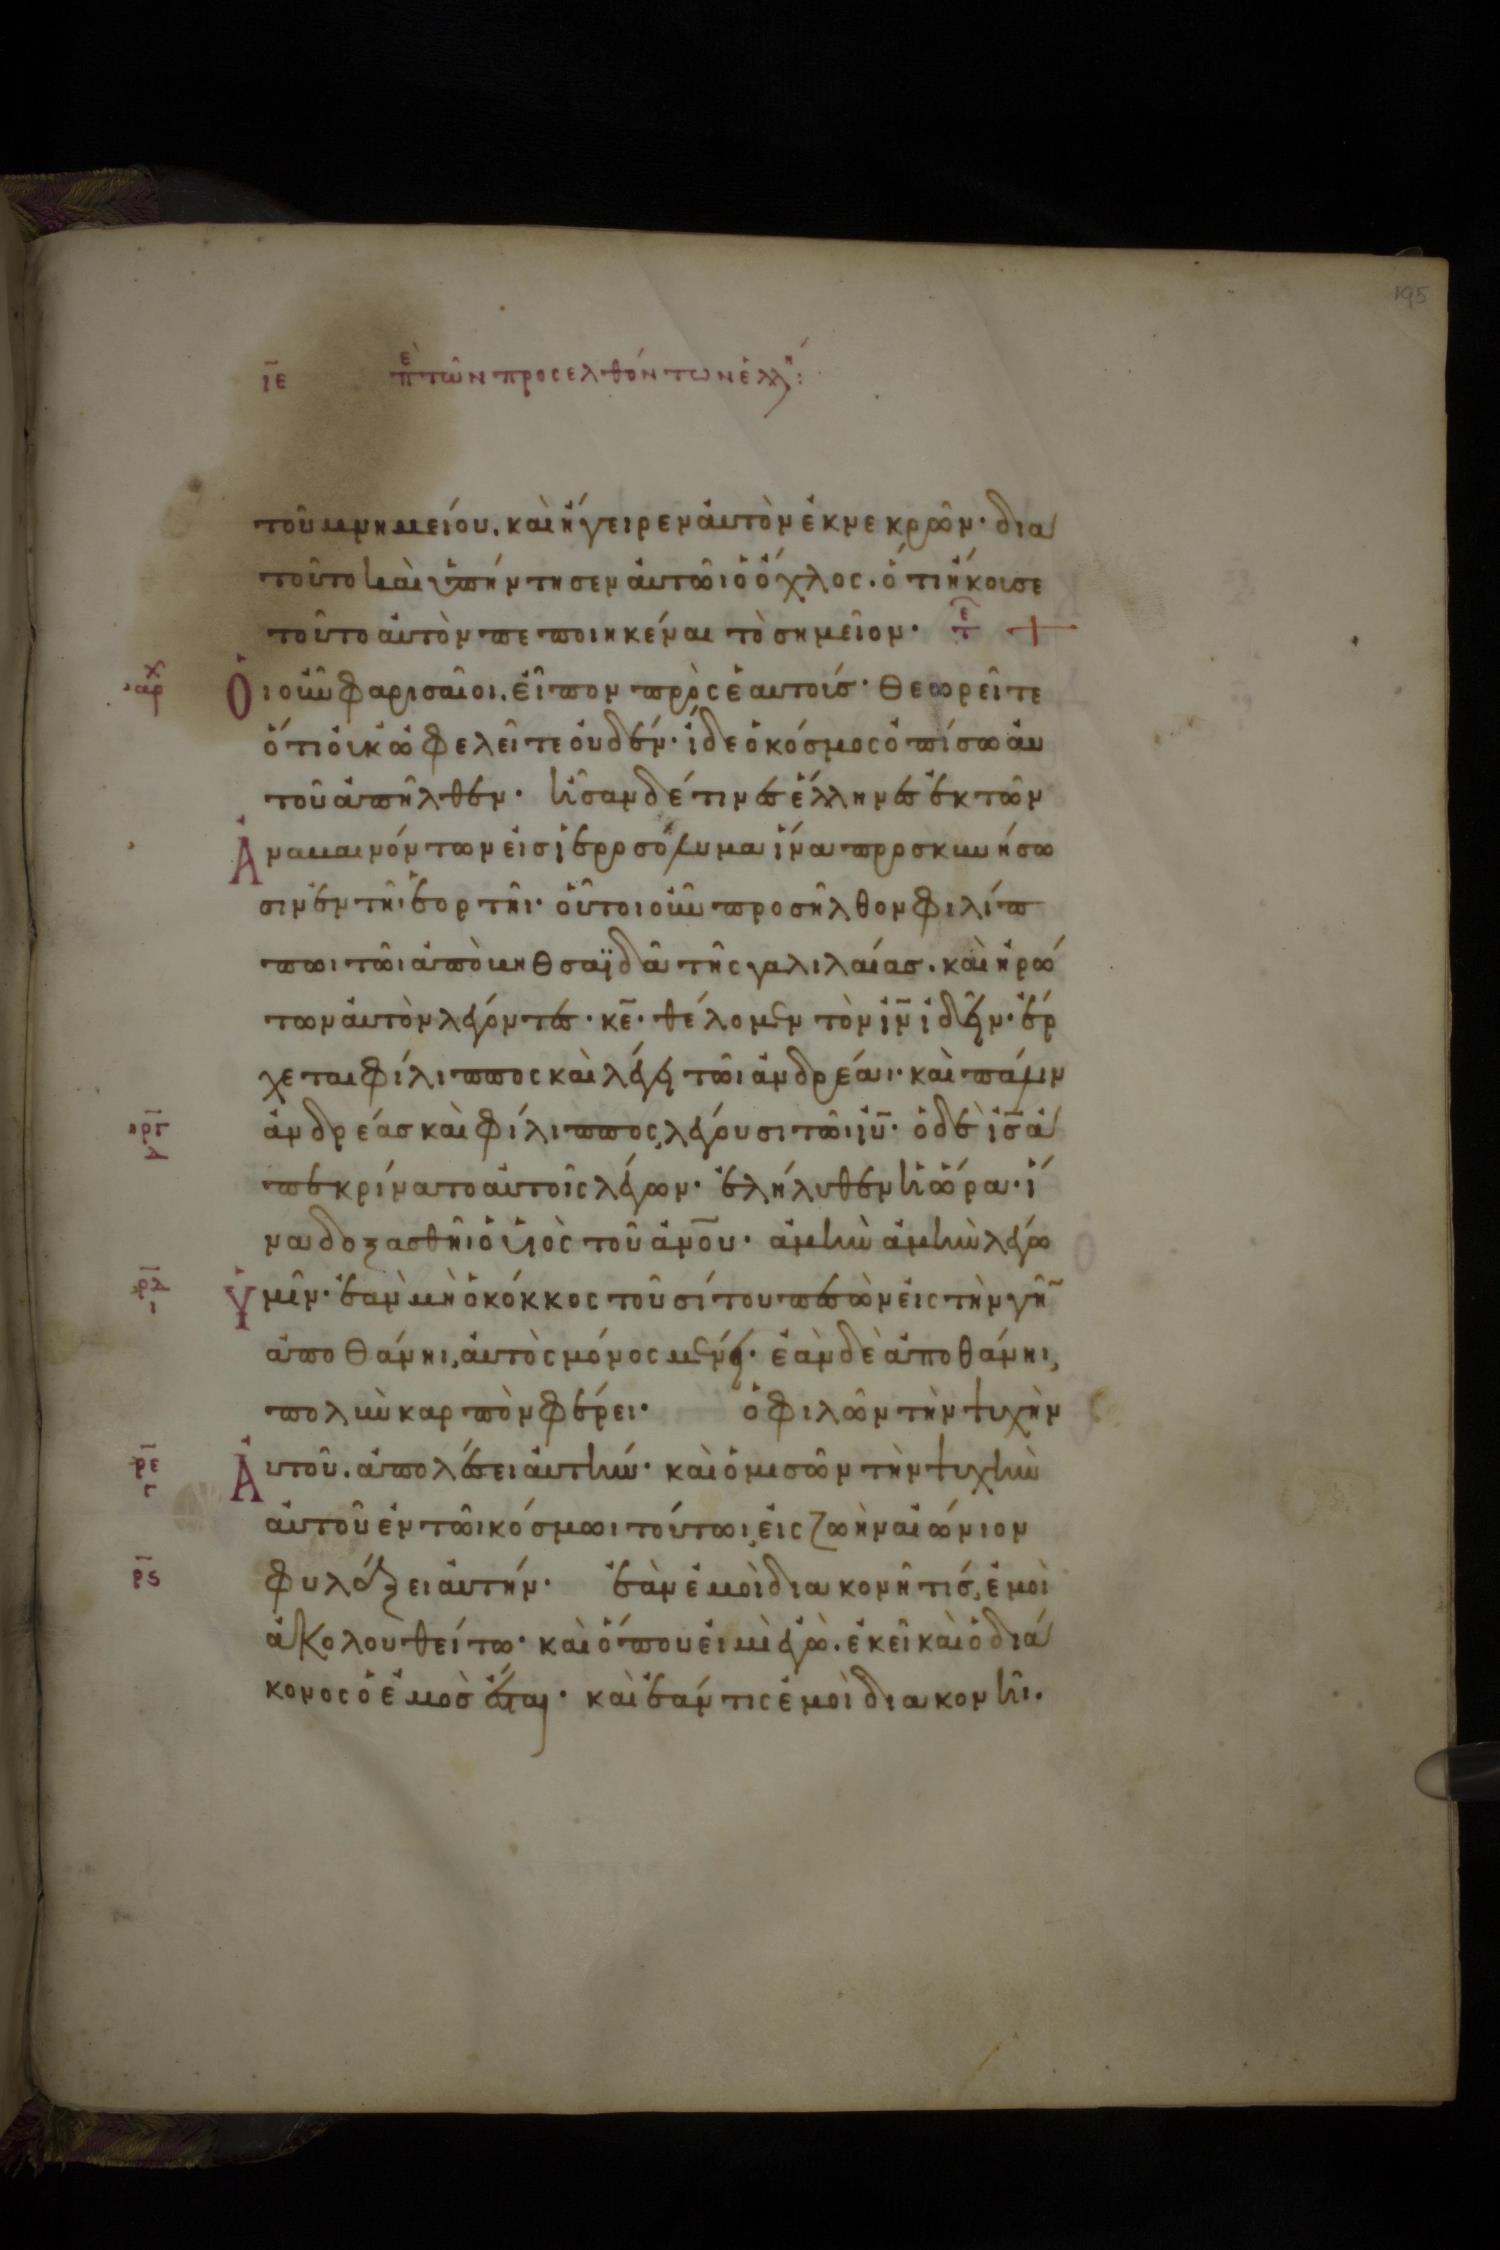 195
ιε περὶ τῶν προσελθόντων ἑλλή:
τοῦ μνημείου. καὶ ἤγειρεν αὐτὸν ἐκ νεκρῶν· δια
τοῦτο καὶ ὑπήντησεν αὐτῶι ὁ ὄχλος. ὅτι ἤκουσε
τοῦτο αὐτὸν πεποιηκέναι τὸ σημεῖον· τε +
αρχ Οἱ οὖν φαρισαῖοι. εἶπον πρὸς ἑαυτούς· Θεωρεῖτε
ὅτι οὐκ ὠφελεῖτε οὐδέν· ἴδε ὁ κόσμος ὀπίσω αὐ
τοῦ ἀπῆλθεν· ἦσαν δέ τινες ἕλληνες ἐκ τῶν
Ἀναβαινόντων εἰς ἱεροσόλυμα ἵνα προσκυνήσω
σιν ἐν τῆι ἑορτῆι· οὗτοι οὖν προσῆλθον φιλίπ
πωι τῶι ἀπὸ βηθσαϊδὰ τῆς γαλιλαίας. καὶ ἠρώ
των αὐτὸν λέγοντες· κε̄· θέλομεν τὸν ῑν̄ ἰδεῖν· ἔρ
χεται φίλιππος καὶ λέγει τῶι ἀνδρέαι· καὶ πάλιν
ἀνδρέας καὶ φίλιππος, λέγουσι τῶι ῑῡ· ὁ δὲ ῑς̄ ἀ
ργ δ
πεκρίνατο αὐτοῖς λέγων· ἐλήλυθεν ἡ ὥρα· ἵ
να δοξασθῆι ὁ υἱὸς τοῦ ἀν̄ου· ἀμὴν ἀμὴν λέγω
ρδ ι Ὑμῖν· ἐὰν μὴ ὁ κόκκος τοῦ σίτου πεσὼν εἰς τὴν γῆ̄
ἀποθάνηι, αὐτὸς μόνος μένει· ἐὰν δὲ ἀποθάνηι,
πολὺν καρπὸν φέρει· ὁ φιλῶν τὴν ψυχὴν
ρε γ Αὑτοῦ. ἀπολέσει αὐτήν· καὶ ὁ μισῶν τὴν ψυχὴν
αὐτοῦ ἐν τῶι κόσμωι τούτωι, εἰς ζωὴν αἰώνιον
ρϛ φυλάξει αὐτήν· ἐὰν ἐμοὶ διακονῆ τίς, ἐμοὶ
ἀκολουθείτω· καὶ ὅπου εἰμὶ ἐγὼ. ἐκεῖ καὶ ὁ διά
κονος ὁ ἐμὸς ἔσται· καὶ ἐάν τις ἐμοὶ διακονῆι.